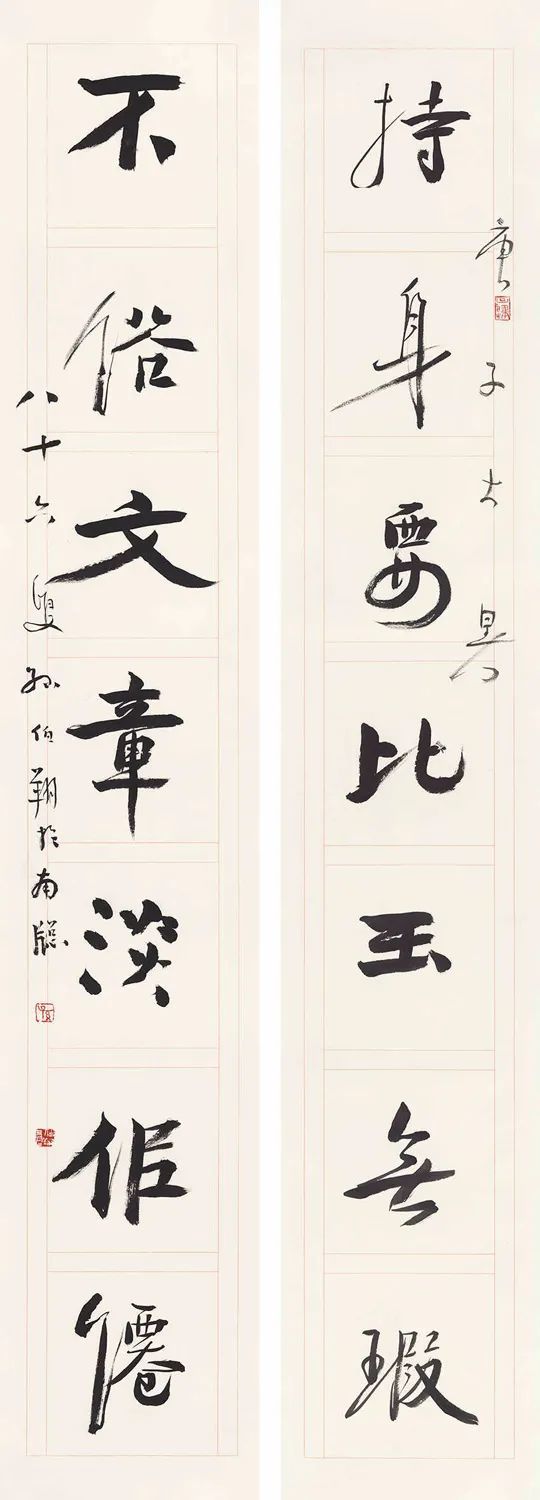 持身要比玉無瑕
庚子大暑
不俗文章淡佀僊
八十六叟孫伯翔於南牕